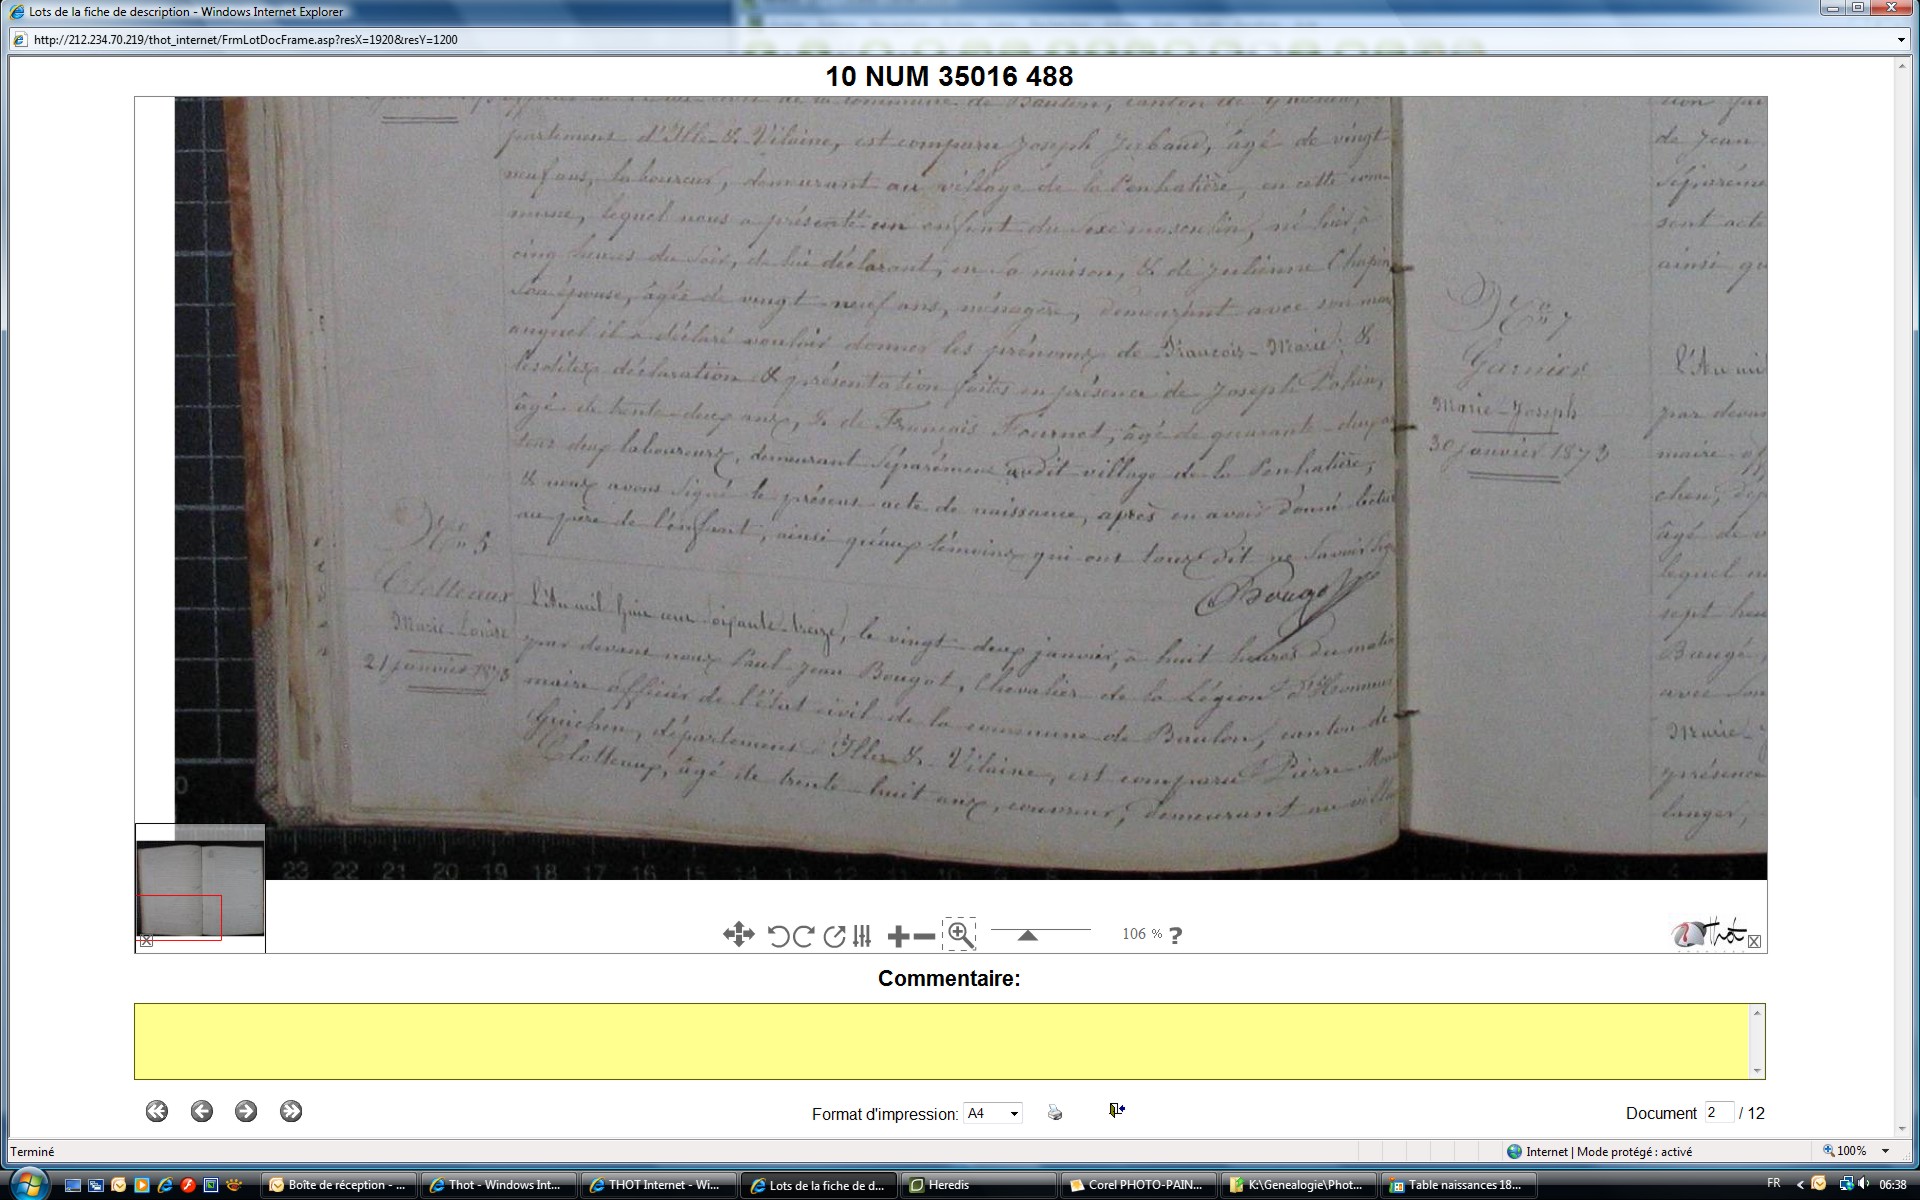 Lots de la fiche de description - Windows Internet Explorer
http://212.234.70.219/thot_internet/FrmLotDocFrame.asp?resX=1920&resY=1200
10 NUM 35016 488
de la commune de Baulon, canton de
partement d'Ille-&-Vilaine, est comparu Joseph âgé de vingt
neuf ans, laboureur, demeurant au village de la Penhatière, en cette com-
mune, lequel nous a présenté un enfant du sexe masculin, né hier à
cinq heures du soir, de lui déclarant, en sa maison, & de Julienne
son épouse, âgée de vingt-neuf ans, ménagère, demeurant avec son mari
auquel il a déclaré vouloir donner les prénoms de François-Marie; &
lesdites déclaration & présentation faites en présence de Joseph
âgé de trente-deux ans, & de François Fournet, âgé de quarante-deux
tous deux laboureurs, demeurant séparément audit village de la Penhatière,
& nous avons signé le présent acte de naissance, après en avoir donné lecture
au père de l'enfant, ainsi qu'aux témoins qui ont tous dit ne savoir
Bougot
No 5
Clotteaux
Marie-Louise
21 janvier 1873
L'An mil huit cent soixante-treize, le vingt-deux janvier, à huit heures du matin
par devant nous Paul Jean Bougot, Chevalier de la Légion d'Honneur
maire officier de l'état civil de la commune de Baulon, canton de
Guichen, département d'Ille-&-Vilaine, est comparu Pierre
Clotteaux, âgé de trente-huit ans, couvreur, demeurant au
No 7
Garnier
Marie-Joseph
30 janvier 1873
de Jean
séparéme
sont acte
ainsi qu
L'An mil
par devan
maire
chen, dép
âgé de v
lequel
sept heu
Baugé,
avec son
Marie-J
présence
langer,
0
23 22 21 20 19 18 17 16 15 14 13 12
106 % ?
Thot
Commentaire:
Format d'impression: A4
Document 2 / 12
Terminé
Internet | Mode protégé : activé
100%
Boîte de réception - ...
Thot - Windows Int...
THOT Internet - Wi...
Lots de la fiche de d...
Heredis
Corel PHOTO-PAIN...
K:\Genealogie\Phot...
Table naissances 18...
FR
06:38